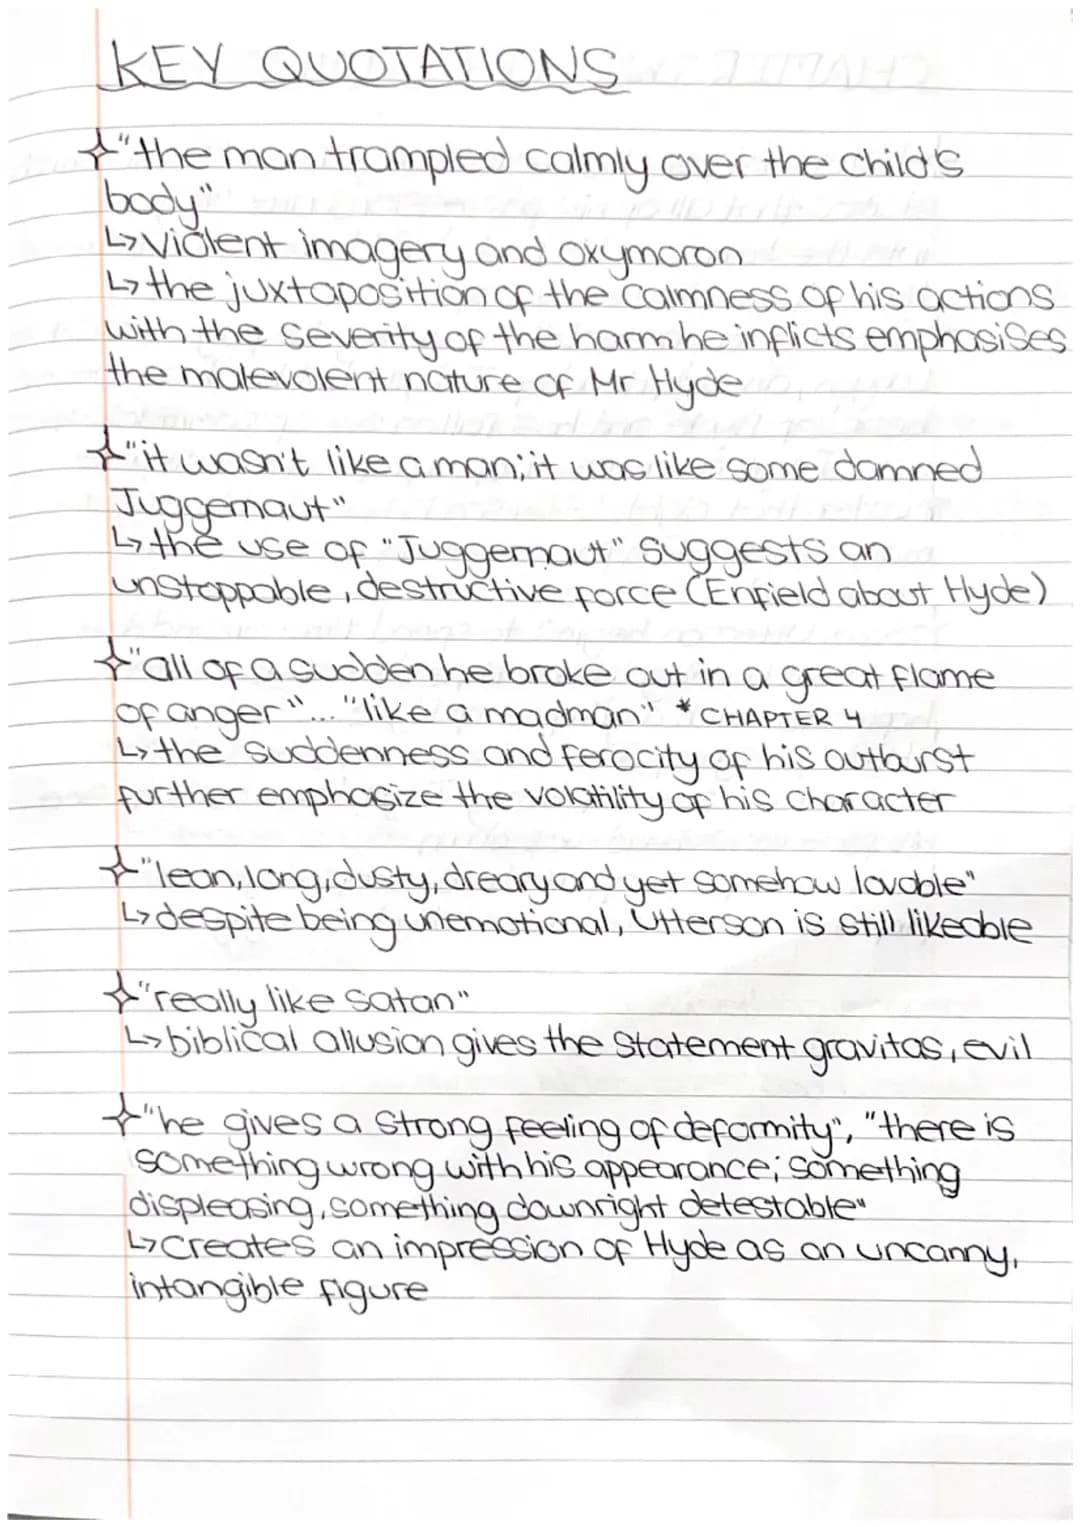 KEY QUOTATIONS
"the man trampled calmly over the child's
body"
↳ violent imagery and oxymoron
↳ the juxtaposition of the calmness of his actions
with the severity of the harm he inflicts emphasises
the malevolent nature of Mr Hyde
"it wasn't like a man; it was like some damned
Juggernaut"
↳ the use of "Juggernaut" suggests an
unstoppable, destructive force (Enfield about Hyde)
"all of a sudden he broke out in a great flame
of anger"... "like a madman" * CHAPTER 4
↳ the suddenness and ferocity of his outburst
further emphasize the volatility of his character
"lean, long, dusty, dreary and yet somehow lovable"
↳ despite being unemotional, Utterson is still likeable
"really like Satan"
↳ biblical allusion gives the statement gravitas, evil
"he gives a strong feeling of deformity", "there is
something wrong with his appearance; something
displeasing, something downright detestable"
↳ creates an impression of Hyde as an uncanny,
intangible figure